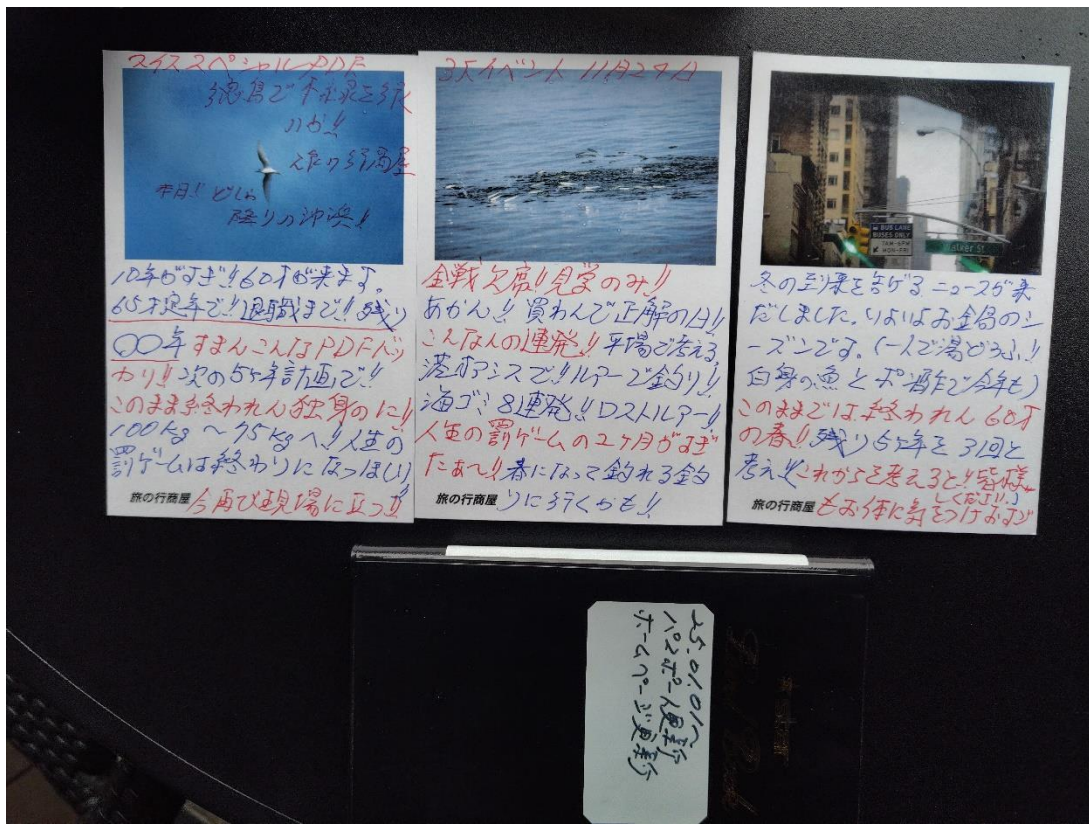 スイススペシャルPDF
徳島で
八か!!
行商屋
本日!! どしゃ
降りの沖浜!!
10年がすぎ!!60才が来ます。
65才定年で!!退職まで!!残り
〇〇年 すまんこんなPDFバッ
カリ!! 次の5ヶ年計画で!!
このまま終われん独身のに!!
100kg~75kgへ!!人生の
罰ゲームは終わりになってほしい
今再び現場に立つ!!
旅の行商屋
3大イベント 11月29日
全戦欠席!!見学のみ!!
あかん!! 買わんで正解の日!!
こんなんの連発!! 平場で考える
港湾アシスで!!ルアーで釣り!!
海ゴミ8連発!!ロストルアー!!
人生の罰ゲームの2ヶ月がすぎ
たぁ〜!! 春になって釣れる釣
りに行くかも!!
旅の行商屋
BUS LANE
BUSES ONLY
7AM-6PM
MON-FRI
alker St
冬の到来を告げるニュースが来
だしました。いよいよお鍋のシ
ーズンです。(一人で湯どうふ!!
白身の魚とポン酢で今年も)
このままでは終われん 60才
の春!! 残り5ヶ年を31回と
考え!! これからを考えると!! 皆様
もお体に気をつけおすご
しください!!
旅の行商屋
25.01.01へ
パスポート更新
ホームページ更新